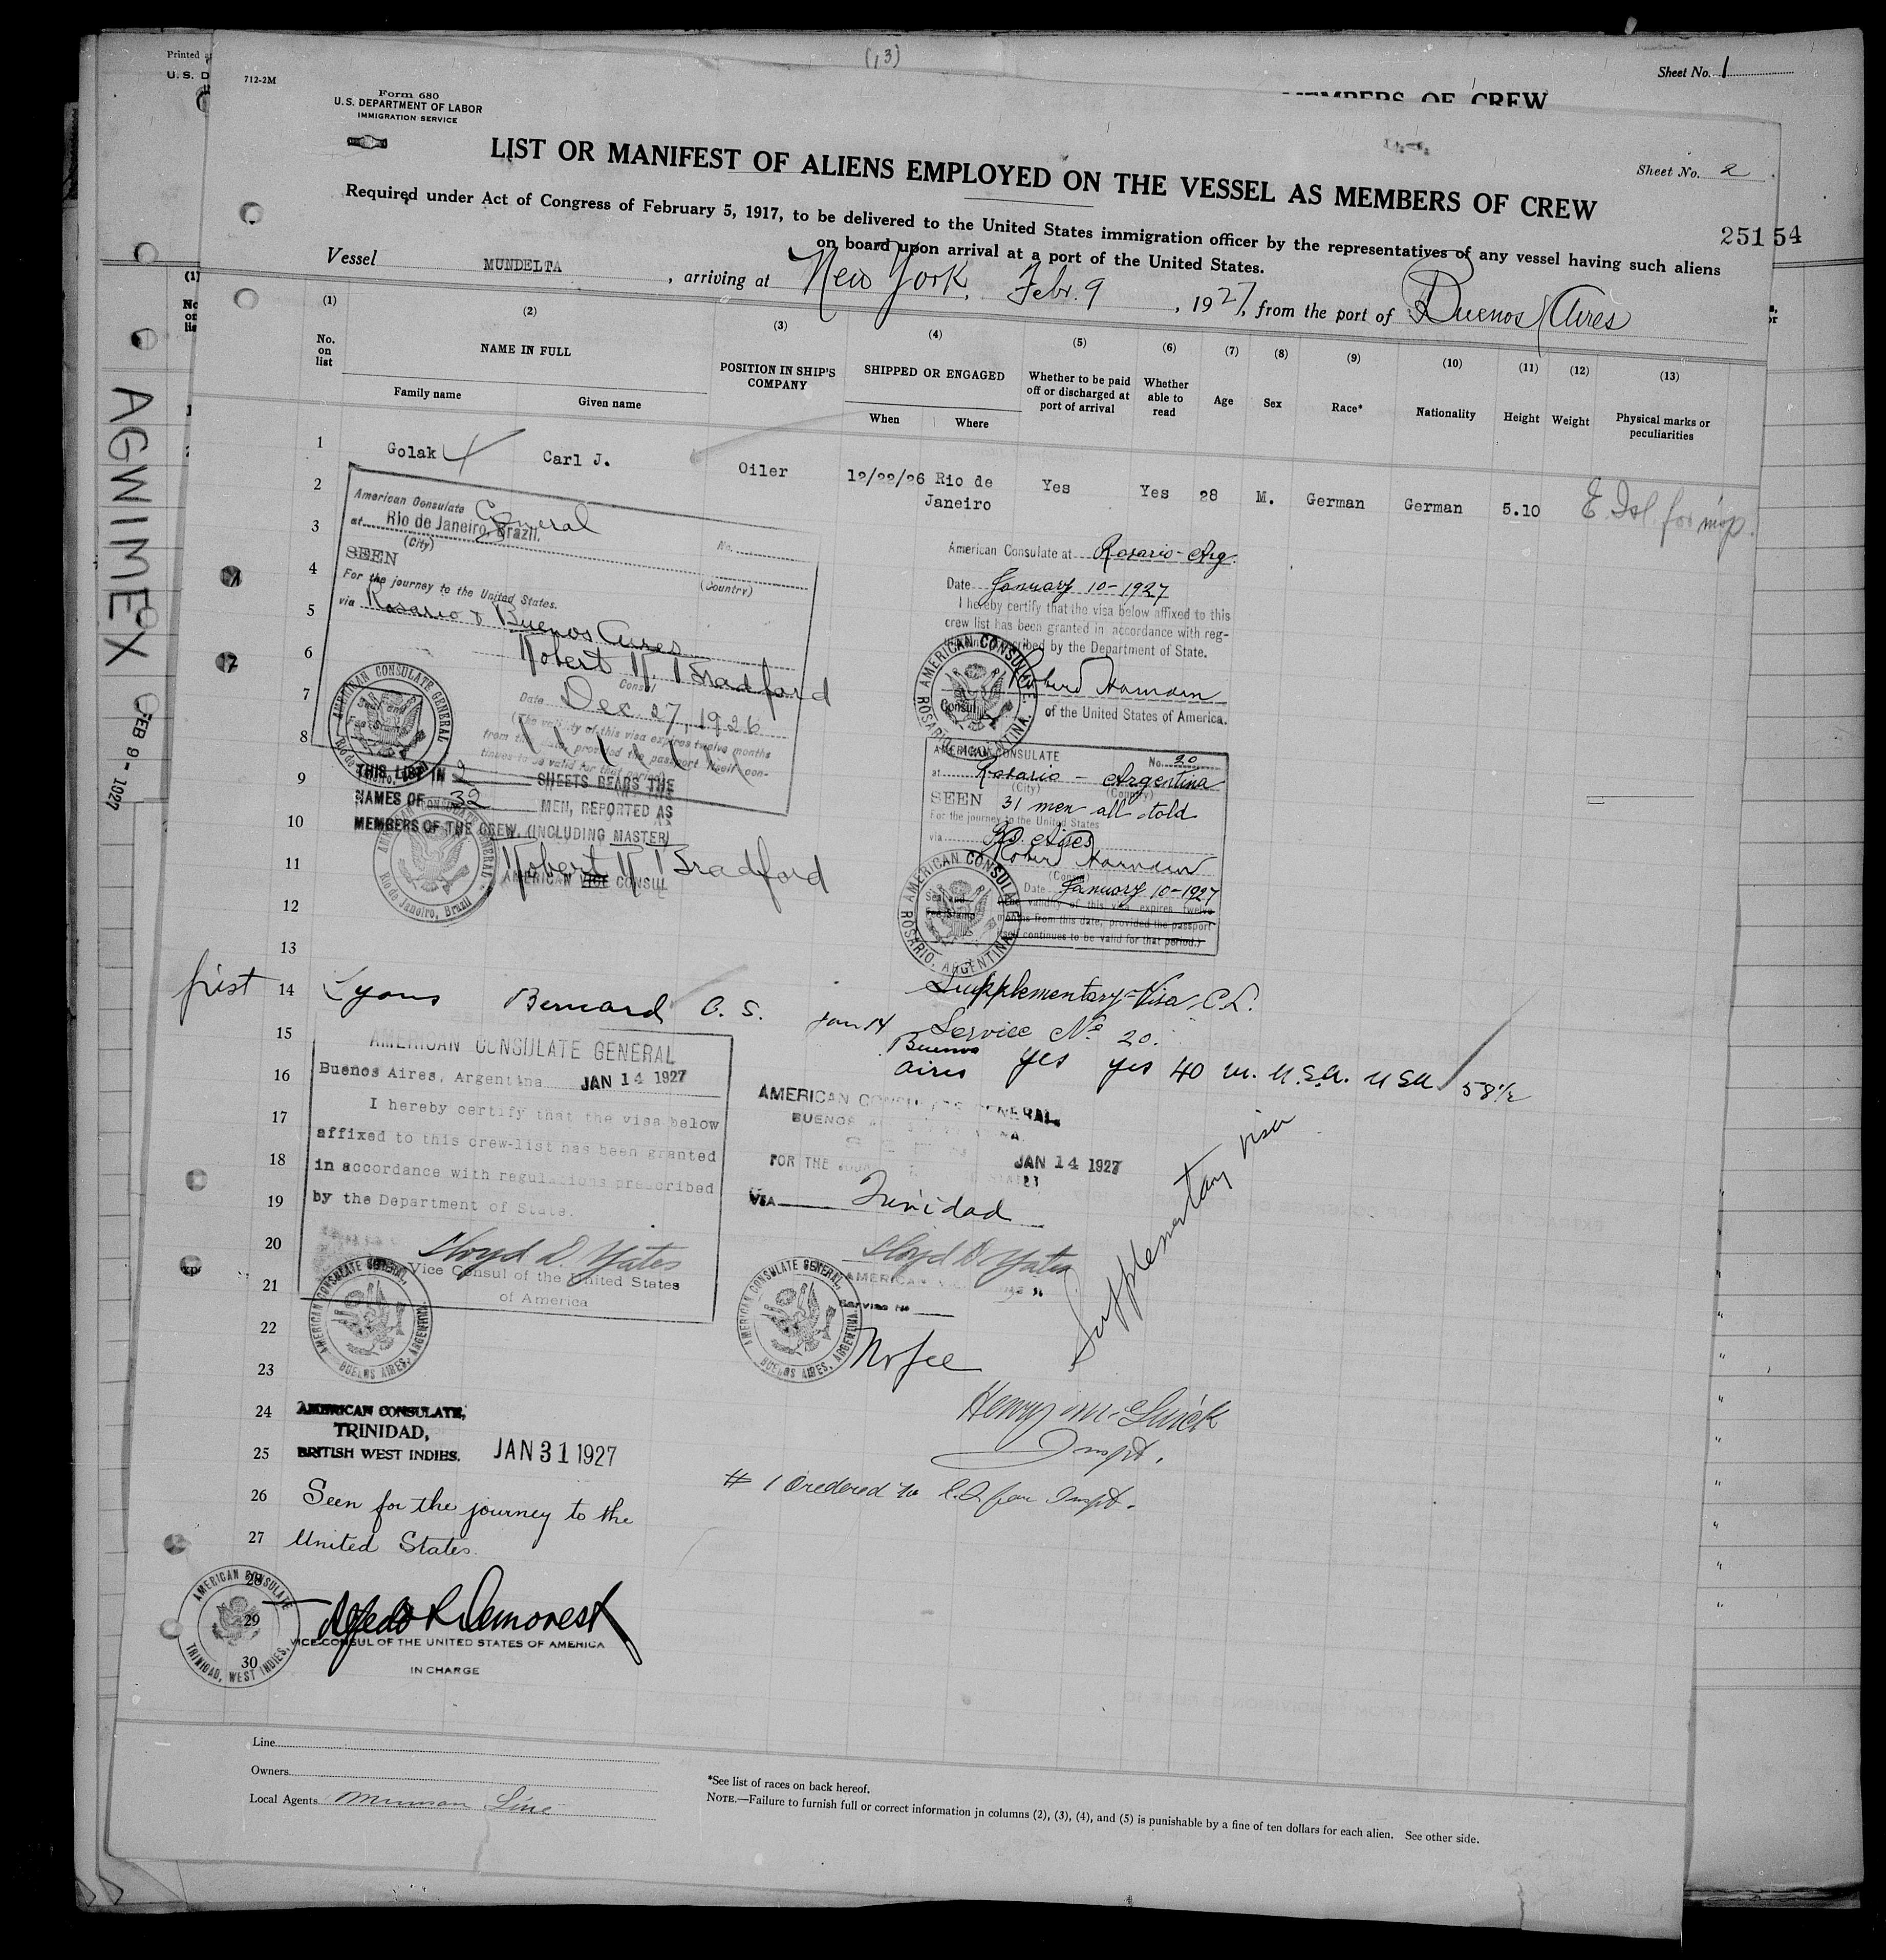 (13)
Printed
U. S. D
712-2M
Sheet No. 1
MEMBERS OF CREW
Form 680
U.S. DEPARTMENT OF LABOR
IMMIGRATION SERVICE
LIST OR MANIFEST OF ALIENS EMPLOYED ON THE VESSEL AS MEMBERS OF CREW
Sheet No. 2
Required under Act of Congress of February 5, 1917, to be delivered to the United States immigration officer by the representatives of any vessel having such aliens
on board upon arrival at a port of the United States.
251 54
Vessel MUNDELTA, arriving at New York, Febr. 9, 1927, from the port of Buenos Aires
(1) (2) (3) (4) (5) (6) (7) (8) (9) (10) (11) (12) (13)
No. on list
NAME IN FULL
Family name
Given name
POSITION IN SHIP'S COMPANY
SHIPPED OR ENGAGED
When
Where
Whether to be paid off or discharged at port of arrival
Whether able to read
Age
Sex
Race*
Nationality
Height
Weight
Physical marks or peculiarities
1 Golak Carl J. Oiler 12/22/26 Rio de Janeiro Yes Yes 28 M. German German 5.10
2
3
4
5
6
7
8
9
10
11
12
13
American Consulate General
at Rio de Janeiro, Brazil. No.
(City) (Country)
SEEN
For the journey to the United States.
via Rosario & Buenos Aires
Robert R. Bradford
Consul
Date Dec. 27, 1926
(The validity of this visa expires twelve months
from this date, provided the passport itself con-
tinues to be valid for that period.)
AMERICAN CONSULATE GENERAL
Rio de Janeiro, Brazil
THIS LIST IN 2 SHEETS BEARS THE
NAMES OF 32 MEN, REPORTED AS
MEMBERS OF THE CREW. (INCLUDING MASTER)
Robert R. Bradford
AMERICAN VICE CONSUL
AMERICAN CONSULATE GENERAL
Rio de Janeiro, Brazil
American Consulate at Rosario - Arg.
Date January 10-1927
I hereby certify that the visa below affixed to this
crew list has been granted in accordance with reg-
ulations prescribed by the Department of State.
Consul of the United States of America.
AMERICAN CONSULATE
ROSARIO, ARGENTINA.
AMERICAN CONSULATE No. 20
at Rosario - Argentina
(City) (Country)
SEEN 31 men all told
For the journey to the United States
via Bs. Aires
(Consul)
Date January 10-1927
Seal and
Fee Stamp
(The validity of this visa expires twelve
months from this date, provided the passport
itself continues to be valid for that period.)
AMERICAN CONSULATE
ROSARIO, ARGENTINA
Supplementary-Visa C.L.
Service No 20.
first 14 Lyons Bernard O. S. Jan 14 Buenos Aires yes yes 40 m. U.S.A. USA 5 8 1/2
15
16
17
18
19
20
21
22
23
AMERICAN CONSULATE GENERAL
Buenos Aires, Argentina JAN 14 1927
I hereby certify that the visa below
affixed to this crew-list has been granted
in accordance with regulations prescribed
by the Department of State.
Lloyd D. Yates
Vice Consul of the United States
of America
AMERICAN CONSULATE GENERAL,
BUENOS AIRES, ARGENTINA
AMERICAN CONSULATE GENERAL
BUENOS
FOR THE JAN 14 1927
VIA Trinidad
Lloyd D. Yates
AMERICAN
Service No
No fee
AMERICAN CONSULATE GENERAL,
BUENOS AIRES, ARGENTINA
Supplementary visa
Inspt.
24
25
26
27
28
29
30
AMERICAN CONSULATE,
TRINIDAD,
BRITISH WEST INDIES. JAN 31 1927
Seen for the journey to the
United States.
VICE CONSUL OF THE UNITED STATES OF AMERICA
IN CHARGE
AMERICAN CONSULATE
TRINIDAD, WEST INDIES.
# 1 Ordered to E.I. for Inspt.
AGWIMEX
FEB 9 - 1927
Line
Owners
Local Agents Munson Line
*See list of races on back hereof.
NOTE.—Failure to furnish full or correct information in columns (2), (3), (4), and (5) is punishable by a fine of ten dollars for each alien. See other side.